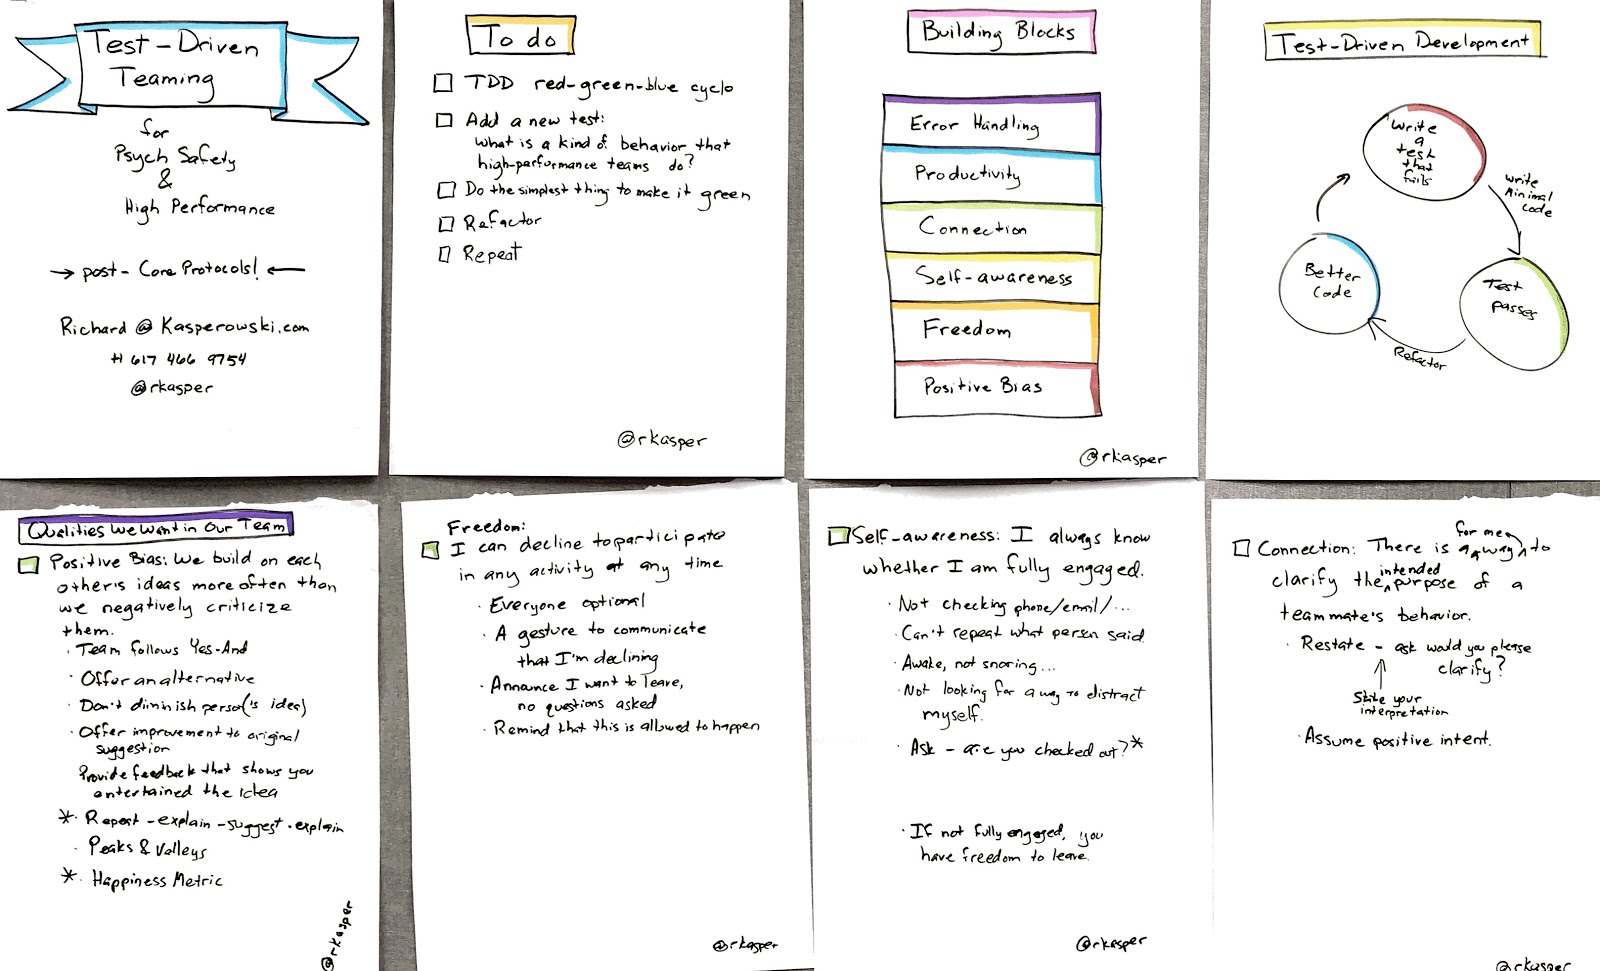 Test-Driven
Teaming
for
Psych Safety
&
High Performance
→ post- Core Protocols! ←
Richard @ Kasperowski.com
+1 617 466 9754
@rkasper
To do
TDD red-green-blue cycle
Add a new test:
What is a kind of behavior that
high-performance teams do?
Do the simplest thing to make it green
Refactor
Repeat
@rkasper
Building Blocks
Error Handling
Productivity
Connection
Self-awareness
Freedom
Positive Bias
@rkasper
Test-Driven Development
Write
a
test
that
fails
write
Minimal
code
Test
passes
Refactor
Better
Code
Qualities We Want in Our Team
Positive Bias: We build on each
other's ideas more often than
we negatively criticize
them.
· Team follows Yes-And
· Offer an alternative
· Don't diminish person('s idea)
· Offer improvement to original
suggestion
Provide feedback that shows you
entertained the idea
* · Repeat - explain - suggest - explain
· Peaks & Valleys
* · Happiness Metric
@rkasper
Freedom:
I can decline to participate
in any activity at any time
· Everyone optional
· A gesture to communicate
that I'm declining
· Announce I want to leave,
no questions asked
· Remind that this is allowed to happen
@rkasper
Self-awareness: I always know
whether I am fully engaged.
· Not checking phone/email/...
· Can't repeat what person said.
· Awake, not snoring...
· Not looking for a way to distract
myself.
· Ask - are you checked out? *
· If not fully engaged, you
have freedom to leave.
@rkasper
Connection: There is a way for me to
clarify the intended purpose of a
teammate's behavior.
· Restate - ask would you please
clarify?
State your
interpretation
· Assume positive intent.
@rkasper